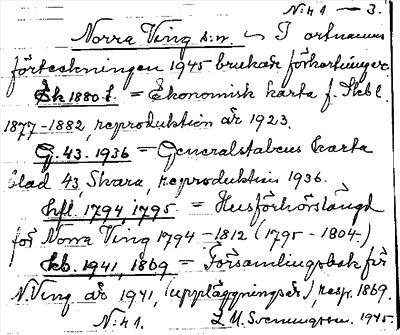 N:r 1 — 3.
Norra Ving s:n. — I ortnamns
förteckningen 1945 brukade förkortningar.
Ek 1880 t. = Ekonomisk karta f. Skbl.
1877–1882, reproduktion år 1923.
G. 43. 1936 = Generalstabens karta
blad 43 Skara, reproduktion 1936.
hfl. 1794, 1795 = Husförhörslängd
för Norra Ving 1794–1812 (1795–1804.)
kb. 1941, 1869 = Församlingsbok för
N. Ving år 1941, (uppläggningsår), resp. 1869.
N:r 1. L. M. Svenungsson. 1945.